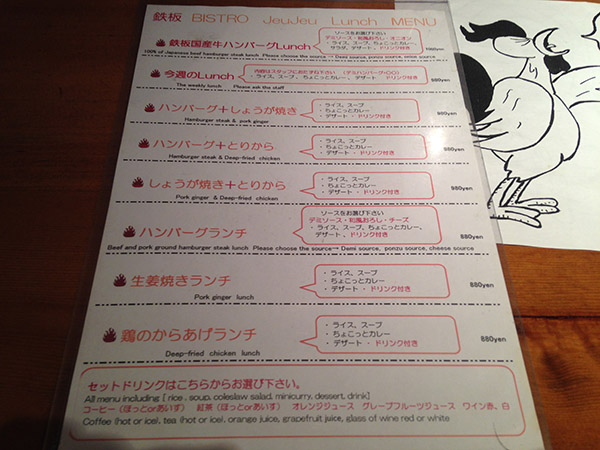 鉄板 BISTRO JeuJeu Lunch MENU
鉄板国産牛ハンバーグLunch
ソースをお選び下さい
デミソース・和風おろし・オニオン
・ライス、スープ、ちょこっとカレー、
サラダ、デザート・ドリンク付き
100% of Japanese beef hamburger steak lunch Please choose the source→ Demi source, ponzu source, onion source
今週のLunch
内容はスタッフにおたずね下さい (デミハンバーグ+〇〇)
・ライス、スープ、ちょこっとカレー、デザート・ドリンク付き
880yen
The weekly lunch Please ask the staff
ハンバーグ+しょうが焼き
・ライス、スープ
・ちょこっとカレー
・デザート・ドリンク付き
980yen
Hamburger steak & pork ginger
ハンバーグ+とりから
・ライス、スープ
・ちょこっとカレー
・デザート・ドリンク付き
980yen
Hamburger steak & Deep-fried chicken
しょうが焼き+とりから
・ライス、スープ
・ちょこっとカレー
・デザート・ドリンク付き
980yen
Pork ginger & Deep-fried chicken
ハンバーグランチ
ソースをお選び下さい
デミソース・和風おろし・チーズ
・ライス、スープ、ちょこっとカレー、
デザート、ドリンク付き
880yen
Beef and pork ground hamburger steak lunch Please choose the source→ Demi source, ponzu source, cheese source
生姜焼きランチ
・ライス、スープ
・ちょこっとカレー
・デザート・ドリンク付き
880yen
Pork ginger lunch
鶏のからあげランチ
・ライス、スープ
・ちょこっとカレー
・デザート・ドリンク付き
880yen
Deep-fried chicken lunch
セットドリンクはこちらからお選び下さい。
All menu including [ rice , soup, coleslaw salad, minicurry, dessert, drink]
コーヒー(ほっとorあいす) 紅茶(ほっとorあいす) オレンジジュース グレープフルーツジュース ワイン赤、白
Coffee (hot or ice), tea (hot or ice), orange juice, grapefruit juice, glass of wine red or white